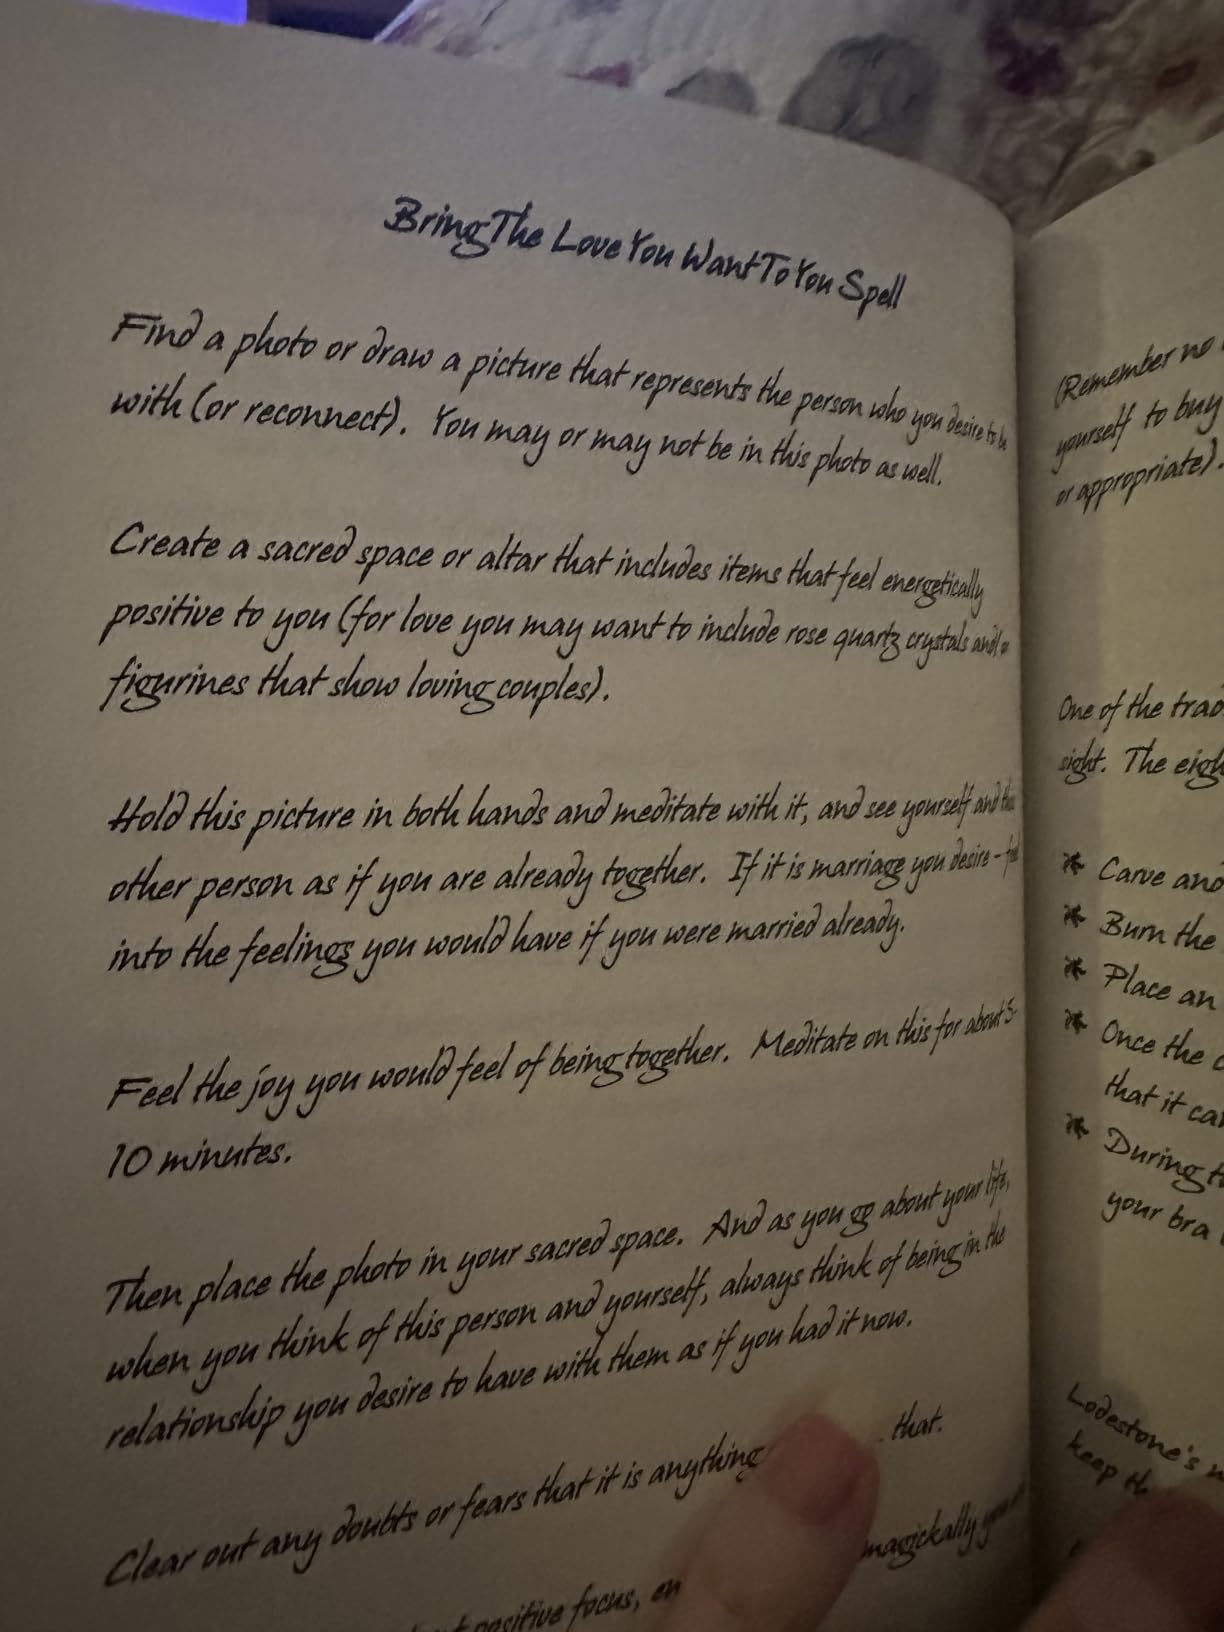 Bring The Love You Want To You Spell
Find a photo or draw a picture that represents the person who you desire to be
with (or reconnect). You may or may not be in this photo as well.
Create a sacred space or altar that includes items that feel energetically
positive to you (for love you may want to include rose quartz crystals and/or
figurines that show loving couples).
Hold this picture in both hands and meditate with it, and see yourself and
other person as if you are already together. If it is marriage you desire -
into the feelings you would have if you were married already.
Feel the joy you would feel of being together. Meditate on this for about 5-
10 minutes.
Then place the photo in your sacred space. And as you go about your life,
when you think of this person and yourself, always think of being in the
relationship you desire to have with them as if you had it now.
Clear out any doubts or fears that it is anything that.
magickally
positive focus,
(Remember no
yourself to buy
or appropriate).
One of the
sight. The
Carve and
Burn the
Place an
Once the
that it
During
your bra
Lodestone's
keep